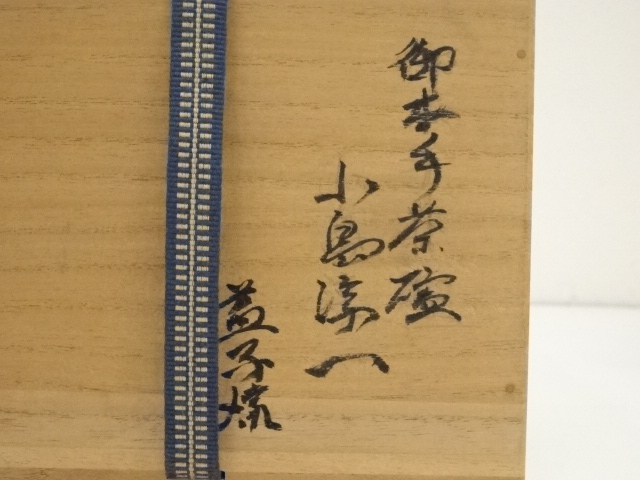 御本手茶碗
小島涼一
益子様